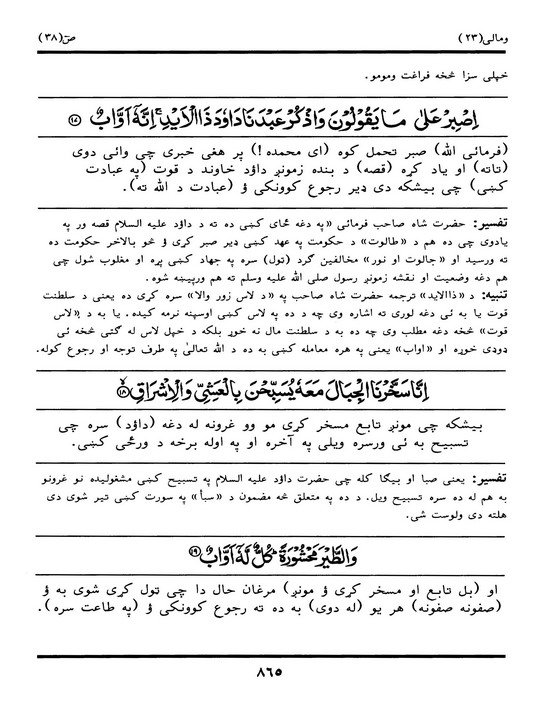 ومالی(۲۳) صٓ(۳۸)
خپلی سزا څخه فراغت ومومو.
اِصْبِرْ عَلٰى مَا يَقُوْلُوْنَ وَاذْكُرْ عَبْدَنَا دَاوٗدَ ذَا الْاَيْدِ ۚ اِنَّهٗۤ اَوَّابٌ ﴿۱۷﴾
(فرمائی الله) صبر تحمل کوه (ای محمده !) پر هغی خبری چی وائی دوی
(تاته) او یاد کړه (قصه) د بنده زمونږ داؤد خاوند د قوت (په عبادت
کښی) چی بیشکه دی ډیر رجوع کوونکی ؤ (عبادت د الله ته).
تفسیر: حضرت شاه صاحب فرمائی «په دغه ځای کښی ده ته د داؤد علیه السلام قصه ور په
یادوی چی ده هم د «طالوت» د حکومت په عهد کښی ډیر صبر کړی ؤ څو بالاخر حکومت ده
ته ورسید او «جالوت او نور» مخالفین ګرد (ټول) سره په جهاد کښی پړه او مغلوب شول چی
هم دغه وضعیت او نقشه زمونږ رسول صلی الله علیه وسلم ته هم ورپیښه شوه.
تنبیه: د «ذاالاید» ترجمه حضرت شاه صاحب په «د لاس زور والا» سره کړی ده یعنی د سلطنت
قوت یا به ئی دغه لوری ته اشاره وی چه د ده په لاس کښی اوسپنه نرمه کیده. یا به د «لاس
قوت» څخه دغه مطلب وی چه ده به د سلطنت مال نه خوړ بلکه د خپل لاس له ګټی څخه ئی
ډوډی خوړه او «اواب» یعنی په هره معامله کښی به ده د الله تعالیٰ په طرف توجه او رجوع کوله.
اِنَّا سَخَّرْنَا الْجِبَالَ مَعَهٗ يُسَبِّحْنَ بِالْعَشِىِّ وَالْاِشْرَاقِ ﴿۱۸﴾
بیشکه چی مونږ تابع مسخر کړی مو وو غرونه له دغه (داؤد) سره چی
تسبیح به ئی ورسره ویلی په آخره او په اوله برخه د ورځی کښی.
تفسیر: یعنی صبا او بیګا کله چی حضرت داؤد علیه السلام په تسبیح کښی مشغولیده نو غرونو
به هم له ده سره تسبیح ویل. د ده په متعلق څه مضمون د «سبأ» په سورت کښی تیر شوی دی
هلته دی ولوست شی.
وَالطَّيْرَ مَحْشُوْرَةً ؕ كُلٌّ لَّهٗۤ اَوَّابٌ ﴿۱۹﴾
او (بل تابع او مسخر کړی ؤ مونږ) مرغان حال دا چی ټول کړی شوی به ؤ
(صفونه صفونه) هر یو (له دوی) به ده ته رجوع کوونکی ؤ (په طاعت سره).
۸۶۵